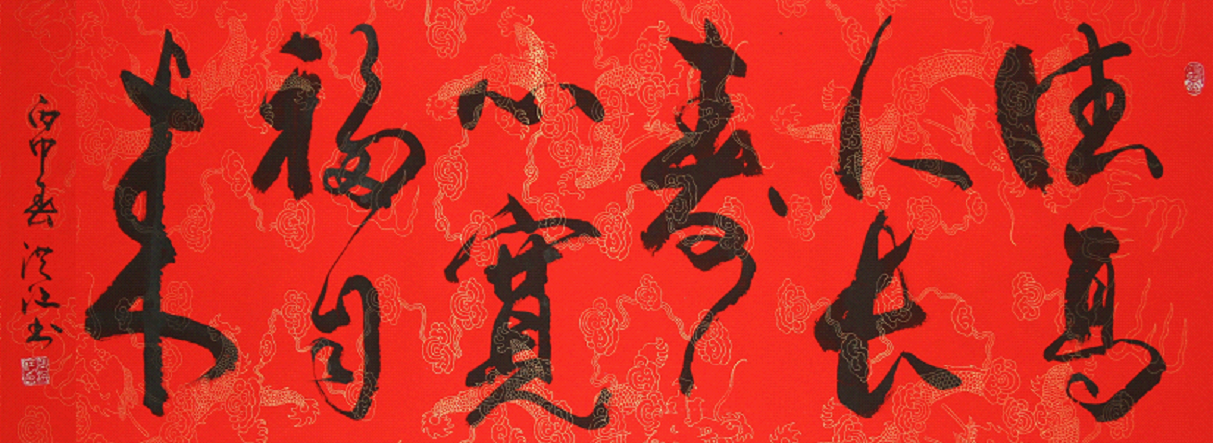 德高
人长
寿
心寛
福自
来
丙申春 洪江书